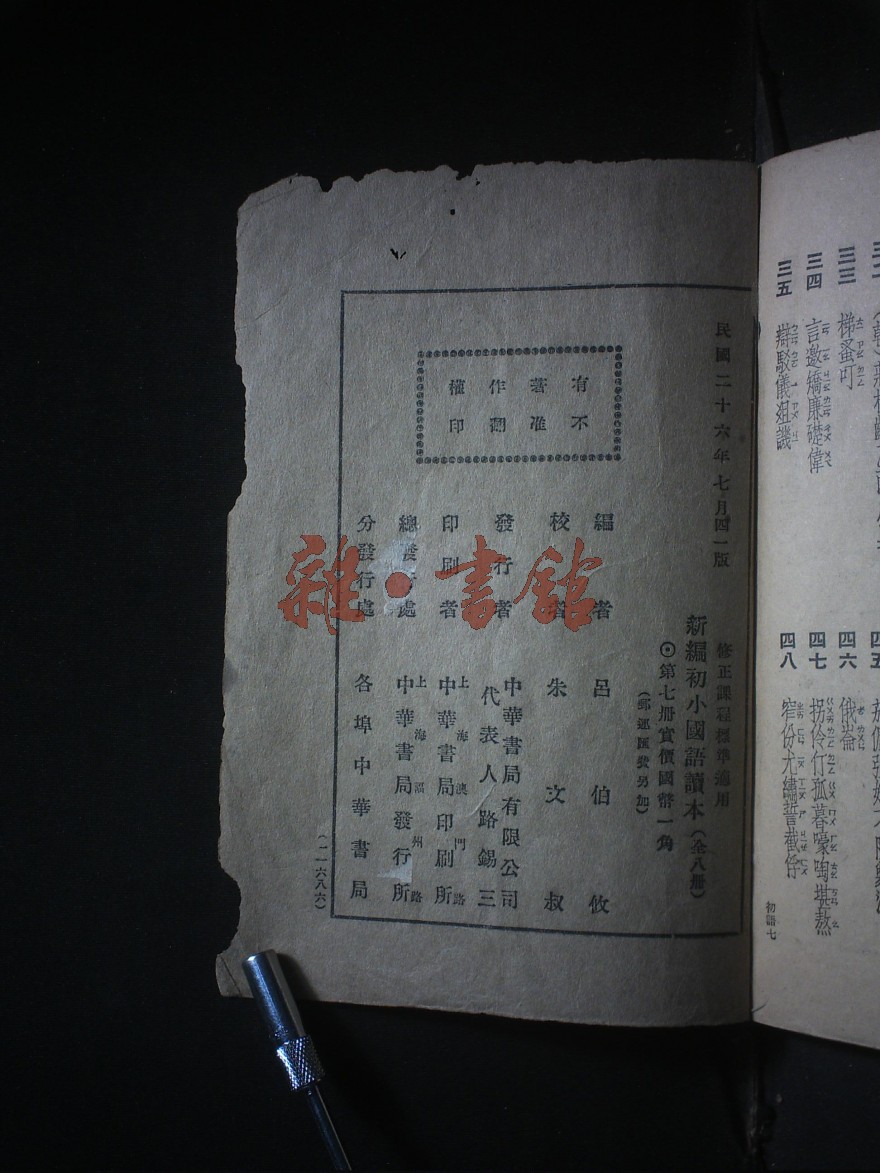 三三 梯蚤叼
三四 言邀矯廉礎偉
三五 辯駁儀俎譏
四六 俄崙
四七 拐伶仃孤暮嚎啕堪熬
四八 窄份尤繡誓截俘
初語七
民國二十六年七月四一版
修正課程標準適用
新編初小國語讀本（全八冊）
◎第七冊實價國幣一角
（郵運匯費另加）
有著作權
不准翻印
編者 呂伯攸
校者 朱文叔
發行者 中華書局有限公司
代表人路錫三
印刷者 上海澳門路
中華書局印刷所
總發行處 上海福州路
中華書局發行所
分發行處 各埠中華書局
（一一六八六）
雜·書館